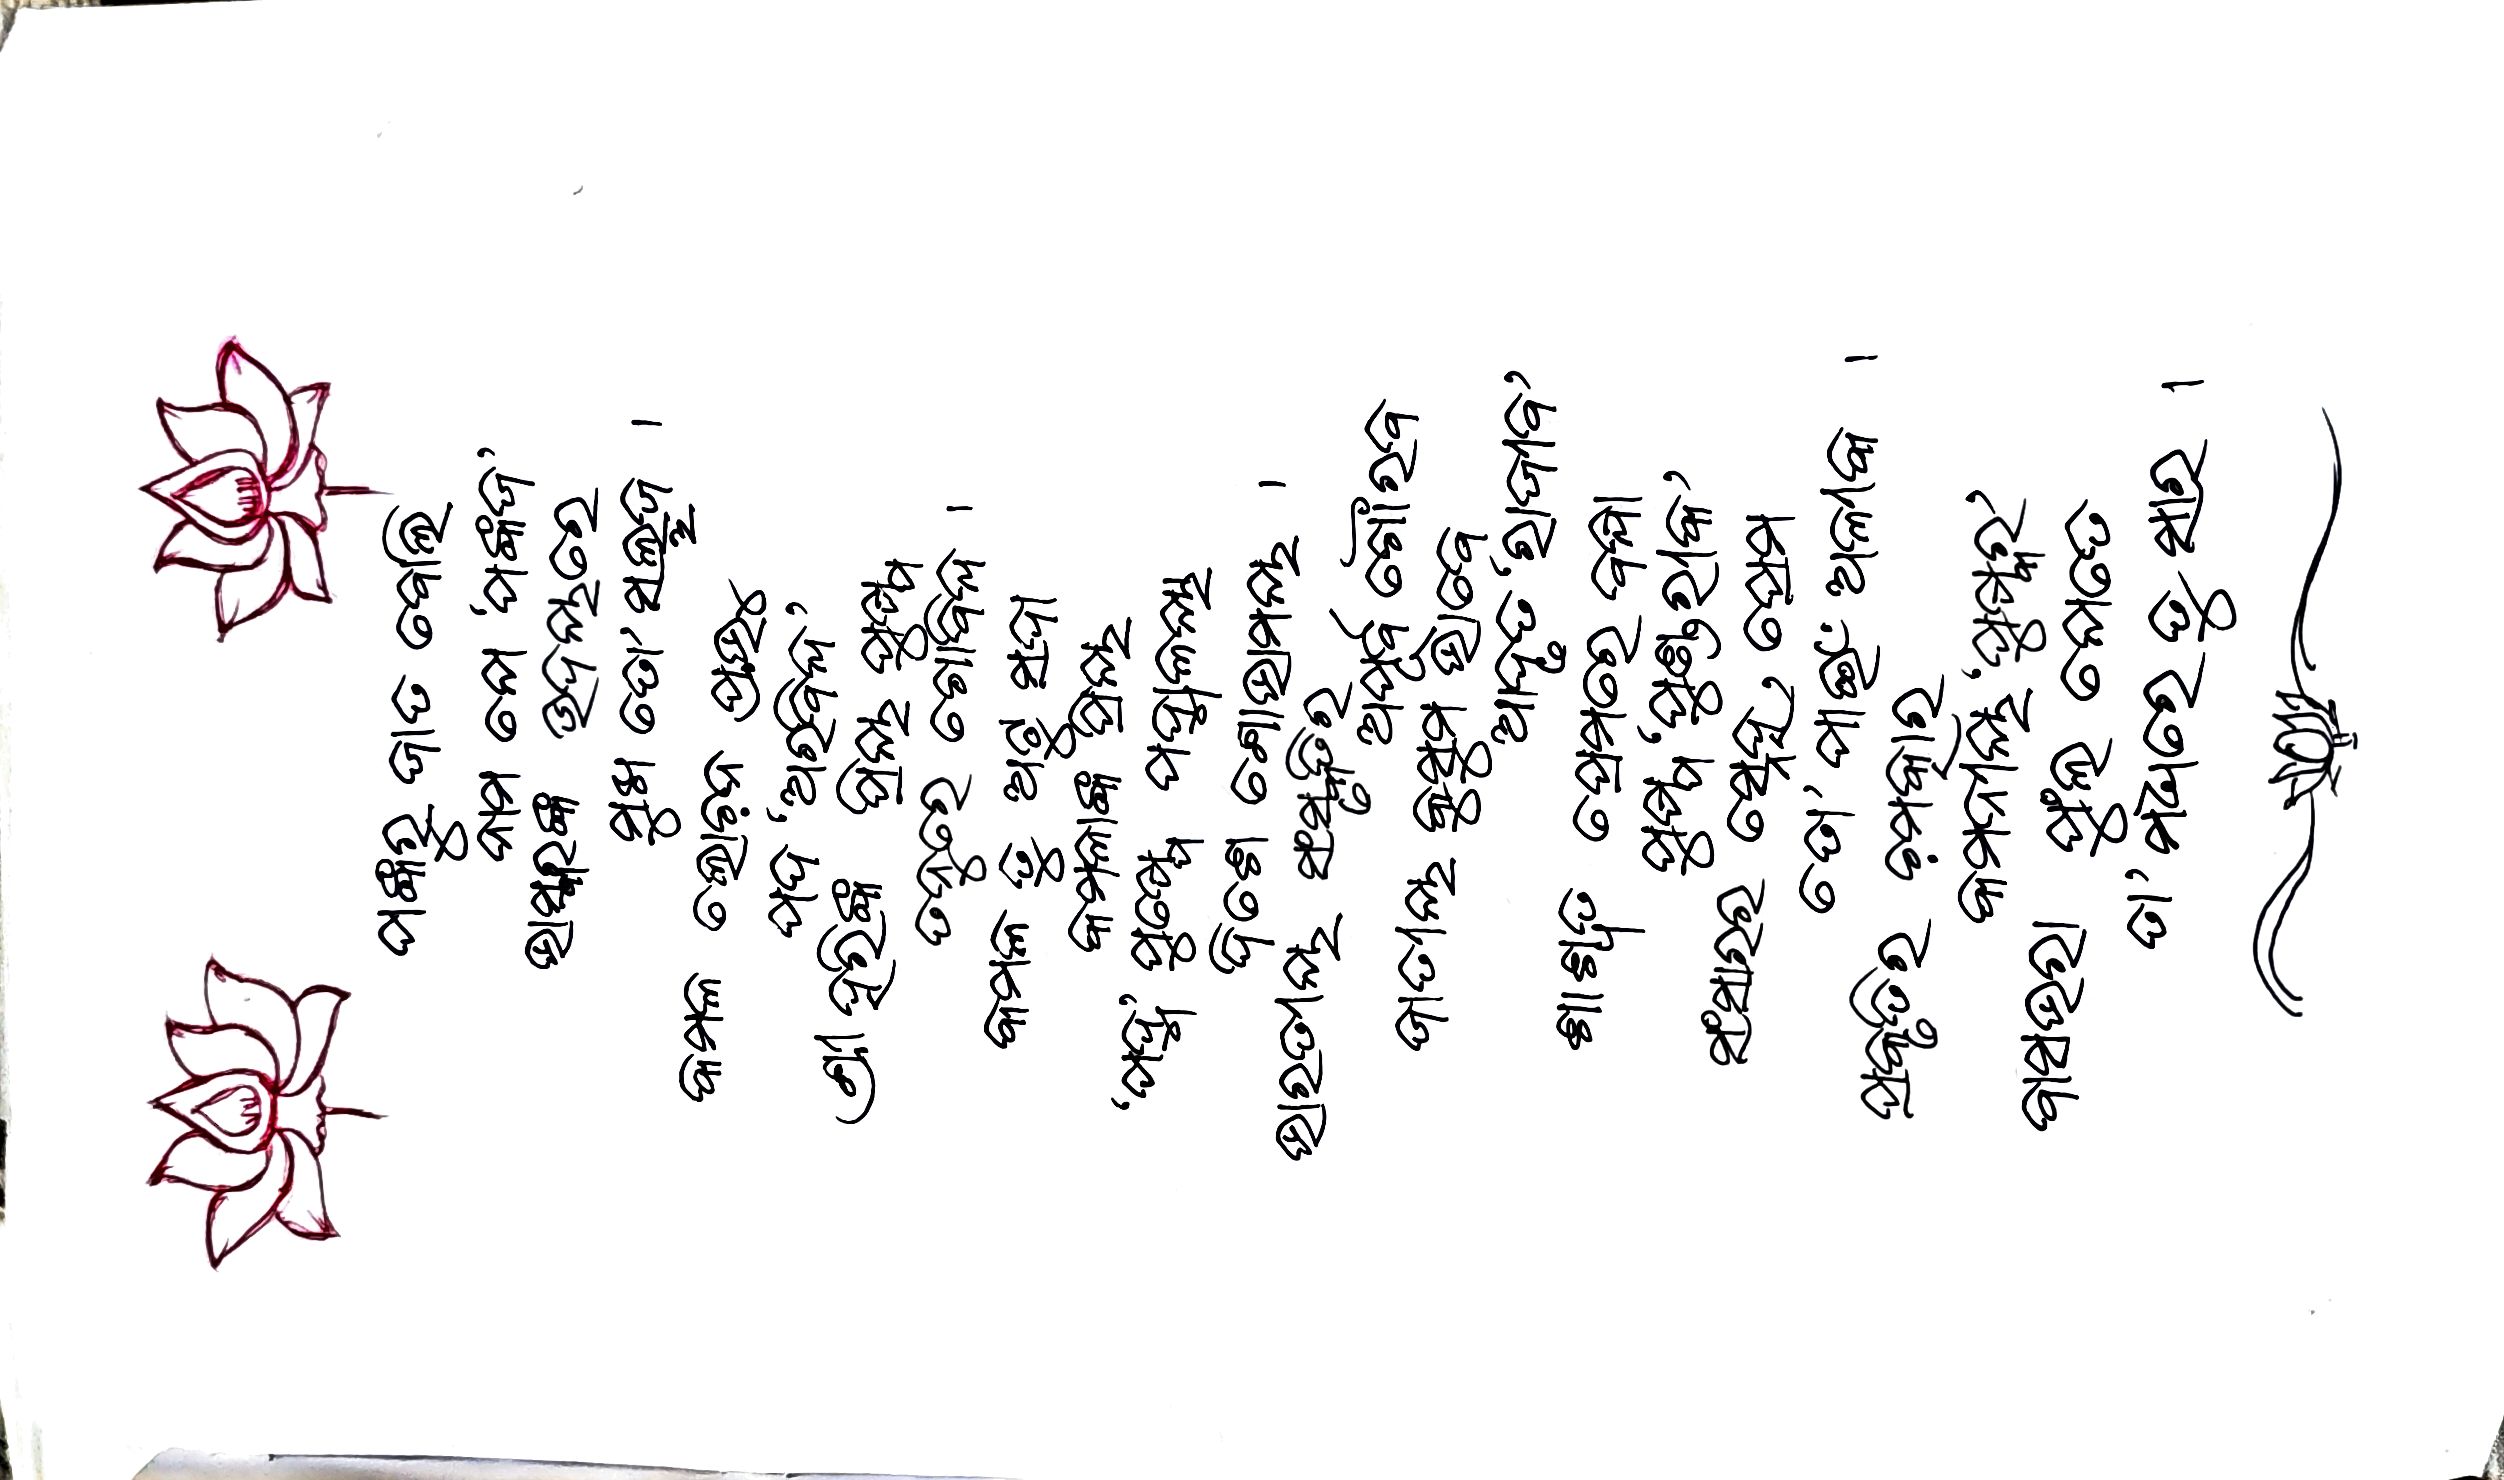 ପଙ୍କରୁ ଜାତ ବୋଲି
ନାମ ମୋ ‘ପଙ୍କଜ’
ଭାସ୍କରଙ୍କ ଉଦୟରେ
ମୁଖ ତୋ’ ସଲ୍ଲଜ ।
କମଳ ଲୋଚନ ପ୍ରଭୁ
ପଦ ‘ଅରବିନ୍ଦ’
ଶ୍ରୀ ହରିଙ୍କ ପ୍ରିୟ ପୁଷ୍ପ
ତନୁରେ ଗୋବିନ୍ଦ ।
କମଳ ତୁ ଅଟୁ ସଦା
କମଳାଙ୍କ ପ୍ରିୟ
‘ପଦ୍ମ’ ପୁଷ୍ପେ ପଦ୍ମାଳୟ
ଦିଶେ ଶୋଭାମୟ ।
ଭାରତୀୟ ସଂସ୍କୃତିର
ଅପୂର୍ବ ଗୌରବ
ଜାତୀୟ କୁସୁମ ଭାବେ
ଆଦୃତ ‘ରାଜୀବ’
ଶାଶ୍ୱତ ପ୍ରେମରେ ବନ୍ଧା
ପୁଷ୍ପ ‘ପୁଣ୍ଡରୀକ’
ସଂସାରର ସ୍ନେହ, ପ୍ରେମ
ତୋ’ ପାଇଁ ଅଳୀକ ।
ପ୍ରକୃତିର ଚମତ୍କାର
କମନୀୟ ‘ପୁଷ୍କର’
ବାସଭରା ଫୁଲ ଯେତେ
ତା’ ମଧ୍ୟରେ ତୁ ସାର ।